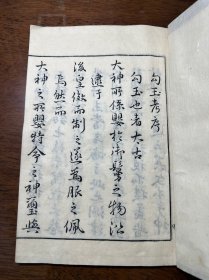 勾玉考序
勾玉也者太古
大神所係嬰於御鬘之物
逮于
後皇倣而制之遂為服之佩
焉然而
大神之所嬰特今之神璽與